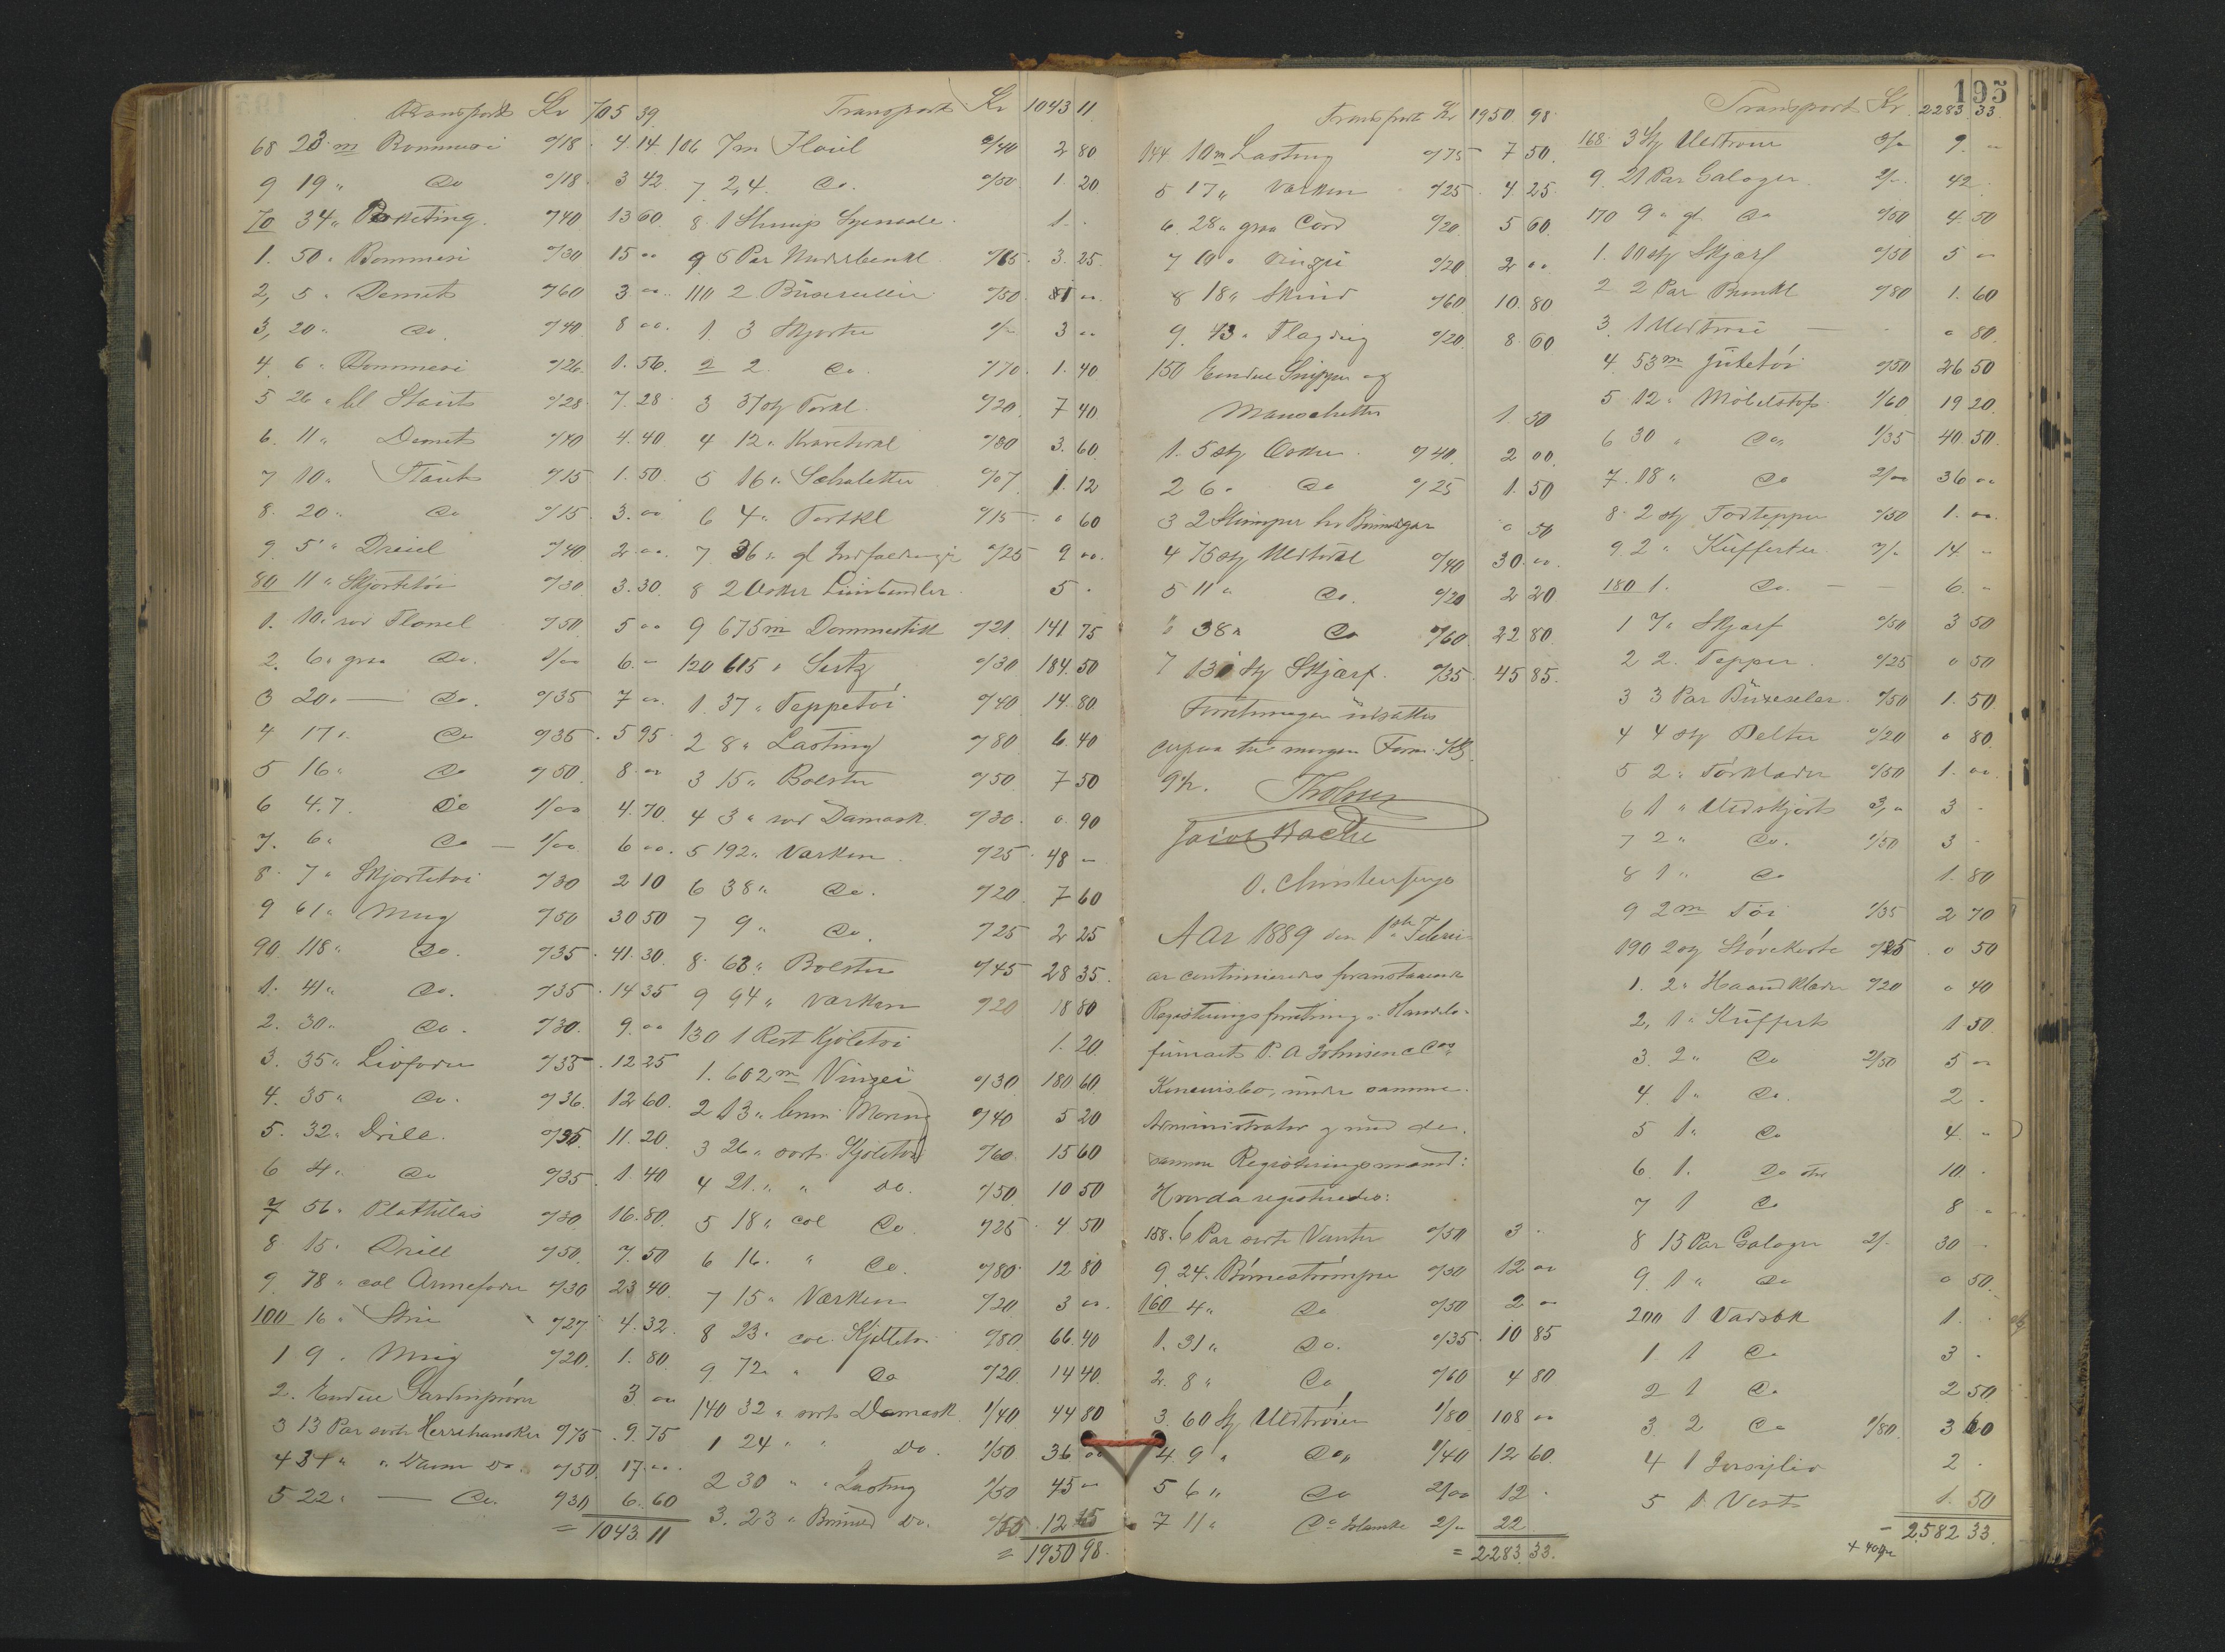 Transport Kr 705 39
68 23 m Bommesi 0/18 4.14
9 19 " Do 0/18 3 42
70 34 " Poketing 0/40 13 60
1. 50 " Bommesi 0/30 15 "
2, 5 " Demets 0/60 3 "
3, 20 " Do 0/40 8 00
4 6 " Bommesi 0/26 1.56
5 26 " bl Stouts 0/28 7.28
6. 11 " Demets 0/40 4.40
7 10 " Stouts 0/15 1.50
8. 20 " Do 0/15 3.00
9. 5 " Dreiel 0/40 2.00
80 11 " Skjortetöi 0/30 3.30
1. 10 " rød Flonel 0/50 5 00
2. 6 " graa Do. 1/00 6. "
3 20 " — Do. 0/35 7 "
4 17 " Do 0/35 5 95
5 16 " Do 0/50 8. "
6 4.7. Do 1/00 4.70
7. 6 " Do — 1/00 6 00
8. 7 " Skjortetöi 0/30 2 10
9 61 " Ming 0/50 30 50
90 118 " Do. 0/35 41.30
1. 41 " Do. 0/35 14 35
2. 30 " Do. 0/30 9.00
3. 35 " Livfoder 0/35 12 25
4. 35 " Do. 0/36 12 60
5. 32 " Drill. 0/35 11.20
6 4 " Do 0/35 1.40
7 56 " Plattillas 0/30 16.80
8 15 " Drill 0/50 7.50
9. 78 " col Armefoder 0/30 23 40
100 16 " Strie 0/27 4.32
1 9 " Ming 0/20 1.80
2. Endeel Gardinprøver 3.00
3 13 Par sorte Herrehansker 0/75 9.75
4 34 " " Dame Do. 0/50 17.00
5 22 " — Do. 0/30 6.60
= 1043 11
Transport Kr 1043 11
106 7 m Floiel 0/40 2 80
7 2,4. Do. 0/50 1.20
8. 1 Stump 1. "
9 5 Par 0/65 3.25
110 2 0/50 1 00
1 3 Skjorter 1/" 3 "
2 2. Do. 0/70 1.40
3 37 stk Torkl. 0/20 7 40
4 12 " 0/30 3.60
5 16 " 0/07 1.12
6 4 " Tortkl 0/15 " 60
7 36 " gl 0/25 9 00
8 2 Æsker 5 "
9 675 m Dommestik 0/21 141 75
120 615 " Sirtz 0/30 184.50
1. 37 " Teppetöi 0/40 14.80
2 8 " Lasting 0/80 6.40
3 15 " Bolster 0/50 7 50
4 3 " rød Damask 0/30 0.90
5 192 " Værken 0/25 48 "
6 38 " Do. 0/20 7 60
7 9 " Do. 0/25 2 25
8. 63 " Bolster 0/45 28 35
9 94 " Værken 0/20 18 80
130 1 Rest Kjoletöi 1.20
1. 602 m Vingei 0/30 180 60
2 13 " brun Moring 0/40 5 20
3 26 " sort Kjoletöi 0/60 15 60
4 21 " " Do. 0/50 10 50
5 18 " col Do. 0/25 4 50
6 16. " Do. 0/80 12 80
7 15 " Værken 0/20 3 "
8 col. Kjoletöi 0/80 66.40
9 72 " " Do 0/20 14 40
140 32 " sort Damask 1/40 44 80
1 24 " " Do. 1/50 36 00
2 30 " " Lasting 1/50 45 "
3. 23 " Do. 0/55 12 65
= 1950 98
Transport Kr 1950 98
144 10 m Lasting 0/75 7 50
5 17 " Værken 0/25 4 25
6. 28 " graa Cord 0/20 5 60
7 10 " Vingei 0/20 2 00
8 18 " Skind 0/60 10.80
9. 43 " Flagdug 0/20 8 60
150 Endeel Snipper og
Manschetter 1.30
1. 5 stk Æsker 0/40 2 00
2 6 " Do 0/25 1.50
3 2 " 50
4 75 stk Uldtørkl 0/40 30.00
5 11 " Do. 0/20 2 20
6 38 " Do 0/60 22 80
7 131 Stk Skjærf. 0/35 45 85
Forretningen udsattes
derpaa til imorgen Form. Kl.
9½.
Jacob Bache
O. Christensen
Aar 1889 den 1ste Februar
continueredes foranstaaende
Registreringsforretning i Handels-
firmaets P. A. Johnsen & Co's
Konkursbo, under samme
Administrator og med de
samme Registreringsmænd:
Hvorda registreredes:
158. 6 Par sorte Vanter 0/50 3 "
9. 24. Børnestrømper 0/50 12 "
160 4 " Do 0/50 2 "
1. 31 " Do. 0/35 10 85
2. 8 " Do 0/60 4 80
3. 60 Stk Uldtrøier 1/80 108 "
4. 9 " Do " 1/40 12 60
5 6 " Do 2/00 12 "
7 11 " Do Islandske 2/" 22
= 2283.33.
195
Transport Kr. 2283 33
168 3 Stk Uldtrøier 3/" 9. "
9. 21 Par Galoger 2/" 42
170 9 " gl Do 0/50 4 50
1. 10 stk Skjærf 0/50 5 "
2 2 Par 0/80 1.60
3. 1 Uldtrøie — " 80
4. 53 m Jutetöi 0/50 26 50
5 12 " Møbelstof 1/60 19 20
6 30 " Do " 1/35 40 50
7. 18 " Do 2/00 36 "
8. 2 stk Fodtepper 0/50 1. "
9 2 " Kufferter 7/" 14 "
180 1. Do. — 6. "
1 7 " Skjærf 0/50 3 50
2 2. Tepper 0/25 " 50
3 3 Par Buxeseler 0/50 1.50
4 4 stk Belter 0/20 " 80
5 2 " Törklæder 0/50 1. "
6 1 " Uldskjørt 3/" 3 "
7 2 " Do. 1/50 3 "
8 1 " Do 1.80
9 2 m Töi 1/35 2 70
190 2 stk Støvekoste 0/25 " 50
1. 2 " Haandklæder 0/20 " 40
2, 1 " Kuffert 1 50
3. 2 " Do 2/50 5 "
4. 1 " Do. 2 "
5 1 " Do 4 "
6. 1. Do 10. "
7 1 Do 8 "
8 13 Par Galoger 2/" 30 "
9. 1 " Do " 50
200 1 Vadsæk 1. "
1. 1 Do 3 "
2 1 Do 2 50
3. 2 Do 1/80 3 60
4 1 2 "
5 1 Vest 1.50
= 2,582 33